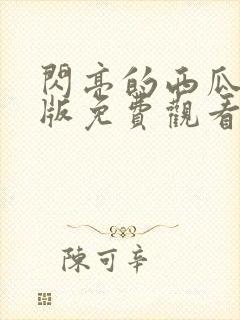 閃亮的西瓜
版免費觀看
陳可辛